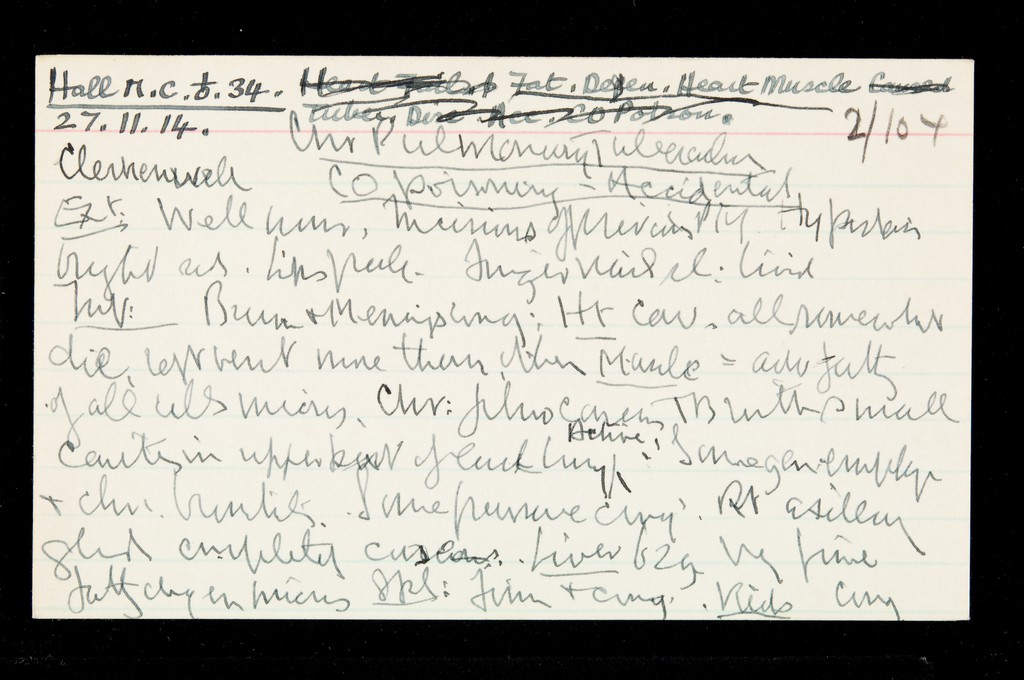 Hall M.C. 34. Heart Fail. Fat. Degen. Heart Muscle Caused
27.11.14. Acc. CO Poison. 2/104
Chr Pulmonary Tuberculr
Clerkenwell CO poisoning = Accidental
Ext: Well nour, Incisions of previous PM. Hypostasis
bright red. Lips pale. Finger nails sl: livid
Int: Brain + Menin: cong: Ht cav. all somewhat
dil, left vent more than other Muscle = adv fatty
of all cells micros. Chr: fibro caseous TB with small
cavity in upper part of each lung. Active. Some gen emphys
+ chr. bronchitis. Some cong. Rt axillary
gland completely caseous. Liver 62 oz, very fine
fatty degen micros Spl: Firm + cong. Kids Cong